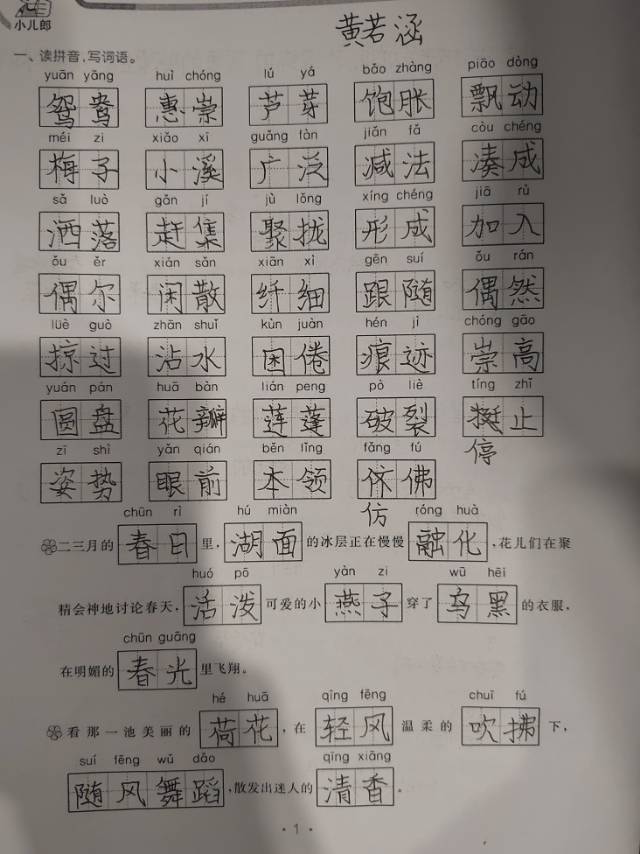 小儿郎
黄若涵
一、读拼音,写词语。
yuān yāng huì chóng lú yá bǎo zhàng piāo dòng
鸳鸯 惠崇 芦芽 饱胀 飘动
méi zi xiǎo xī guǎng fàn jiǎn fǎ còu chéng
梅子 小溪 广泛 减法 凑成
sǎ luò gǎn jí jù lǒng xíng chéng jiā rù
洒落 赶集 聚拢 形成 加入
ǒu ěr xián sǎn xiān xì gēn suí ǒu rán
偶尔 闲散 纤细 跟随 偶然
lüè guò zhān shuǐ kùn juàn hén jì chóng gāo
掠过 沾水 困倦 痕迹 崇高
yuán pán huā bàn lián peng pò liè tíng zhǐ
圆盘 花瓣 莲蓬 破裂 挺止
停
zī shì yǎn qián běn lǐng fǎng fú
姿势 眼前 本领 佽佛
仿
chūn rì hú miàn róng huà
二三月的 春日 里, 湖面 的冰层正在慢慢 融化 ,花儿们在聚
huó pō yàn zi wū hēi
精会神地讨论春天, 活泼 可爱的小 燕子 穿了 乌黑 的衣服,
chūn guāng
在明媚的 春光 里飞翔。
hé huā qīng fēng chuī fú
看那一池美丽的 荷花 ,在 轻风 温柔的 吹拂 下,
suí fēng wǔ dǎo qīng xiāng
随风舞蹈 ,散发出迷人的 清香 。
· 1 ·